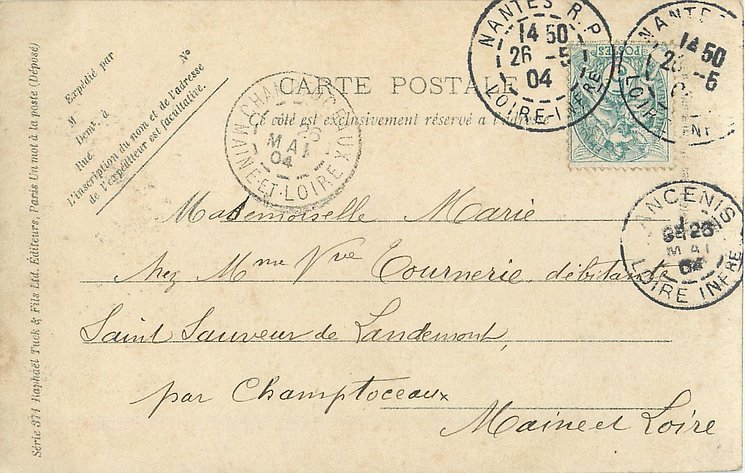 NANTES R.P.
14 50
26 -5
04
LOIRE INFRE
NANTES
14 50
26 -5
LOIRE
POSTES
CARTE POSTALE
Ce côté est exclusivement réservé à
CHAMPTOCEAUX
26
MAI
04
MAINE-ET-LOIRE
ANCENIS
26
MAI
04
LOIRE INFRE
No
Expédié par
M
Demt. à
Rue
L'inscription du nom et de l'adresse
de l'expéditeur est facultative.
Mademoiselle Marie
chez Mme Vve Tournerie, débitante
Saint Sauveur de Landemont,
par Champtoceaux
Maine et Loire
Série 374 Raphaël Tuck & Fils Ltd. Éditeurs, Paris Un mot à la poste (Déposé)